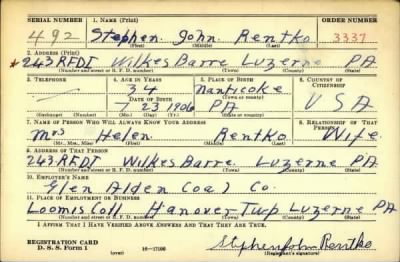 SERIAL NUMBER 1. NAME (Print) ORDER NUMBER
492 Stephen John Rentko 3337
(First) (Middle) (Last)
2. ADDRESS (Print)
*243 RFD1 Wilkes Barre Luzerne PA
(Number, street or R. F. D. number) (Town) (County) (State)
3. TELEPHONE 4. AGE IN YEARS 5. PLACE OF BIRTH 6. COUNTRY OF CITIZENSHIP
34 Nanticoke
DATE OF BIRTH (Town or county)
7 23 1906 PA USA
(Exchange) (No.) (Mo.) (Day) (Yr.) (State or country)
7. NAME OF PERSON WHO WILL ALWAYS KNOW YOUR ADDRESS 8. RELATIONSHIP OF THAT PERSON
Mrs Helen Rentko Wife
(Mr., Mrs., Miss) (First) (Middle) (Last)
9. ADDRESS OF THAT PERSON
243 RFD1 Wilkes Barre. Luzerne PA
(Number, street or R. F. D. number) (Town) (County) (State)
10. EMPLOYER'S NAME
Glen Alden Coal Co.
11. PLACE OF EMPLOYMENT OR BUSINESS
Loomis Coll Hanover Twp Luzerne PA
(Number, street or R. F. D. number) (Town) (County) (State)
I AFFIRM THAT I HAVE VERIFIED ABOVE ANSWERS AND THAT THEY ARE TRUE.
REGISTRATION CARD
D. S. S. Form 1 (over) 16—17100 Stephen John Rentko
(Registrant's signature)